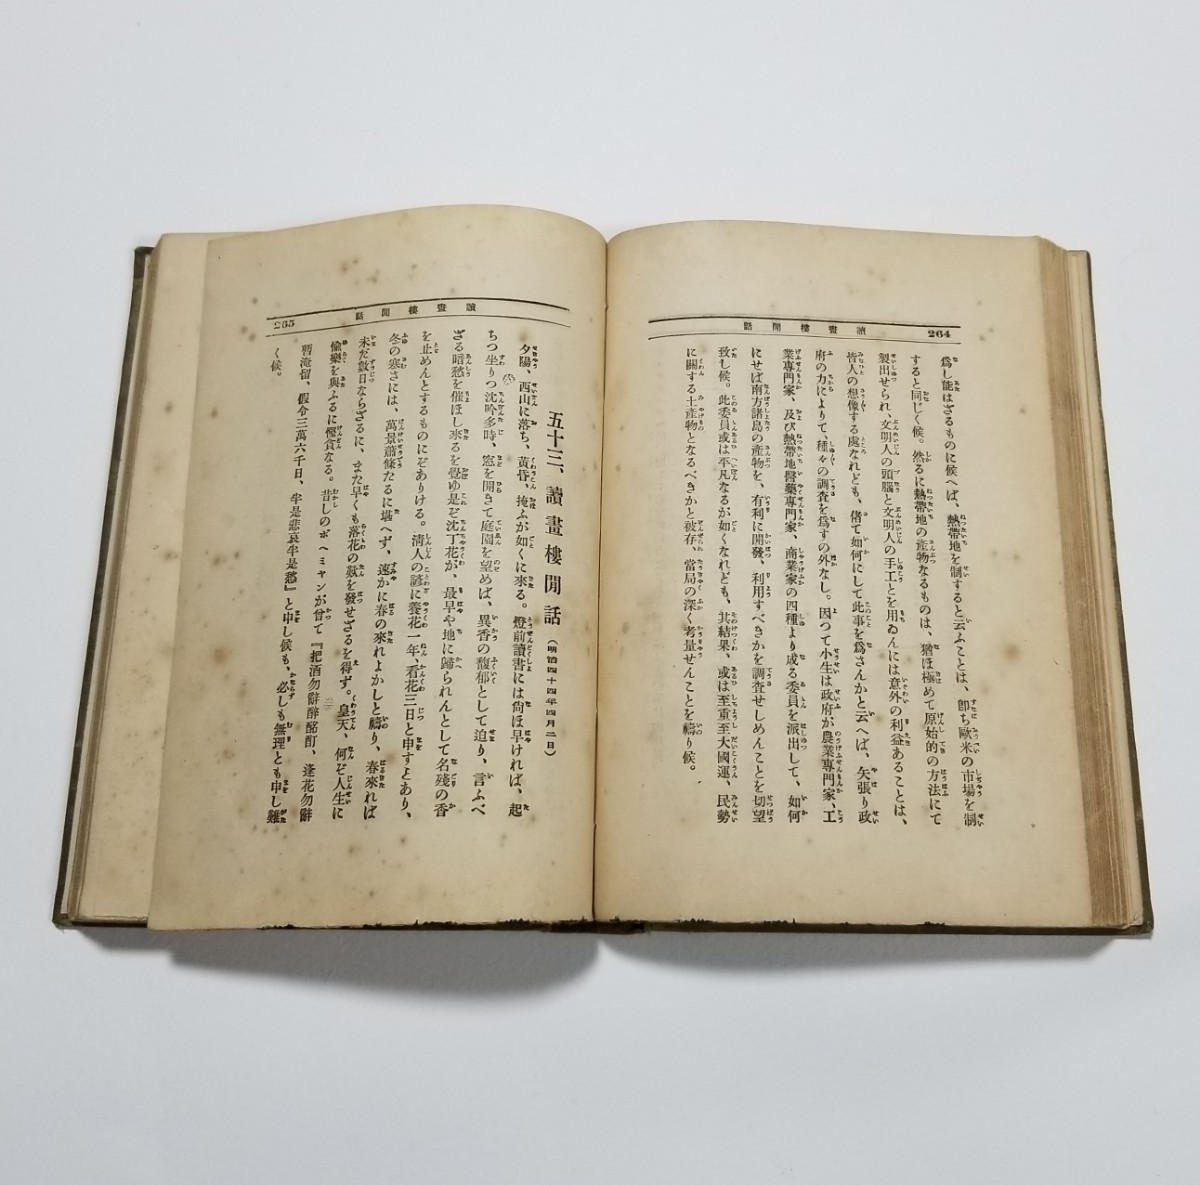 讀畫樓閒話
264
爲し能はざるものに候へば、熱帶地を制すると云ふことは、卽ち歐米の市場を制
すると同じく候。然るに熱帶地の產物なるものは、猶ほ極めて原始的の方法にて
製出せられ、文明人の頭腦と文明人の手工とを用ゐんには意外の利益あることは、
皆人の想像する處なれども、偖て如何にして此事を爲さんかと云へば、矢張り政
府の力によりて、種々の調査を爲すの外なし。因つて小生は政府が農業專門家、工
業專門家、及び熱帶地醫藥專門家、商業家の四種より成る委員を派出して、如何
にせば南方諸島の產物を、有利に開發、利用すべきかを調査せしめんことを切望
致し候。此委員或は平凡なるが如くなれども、其結果、或は至重至大國運、民勢
に關する土產物となるべきかと被存、當局の深く考量せんことを禱り候。
讀畫樓閒話
265
五十三、讀畫樓閒話（明治四十四年四月二日）
夕陽、西山に落ち、黃昏、掩ふが如くに來る。燈前讀書には尙ほ早ければ、起
ちつ坐りつ沈吟多時、窓を開きて庭園を望めば、異香の馥郁として迫り、言ふべ
ざる暗愁を催ほし來るを覺ゆ是ぞ沈丁花が、最早や地に歸られんとして名殘の香
を止めんとするものにぞありける。淸人の諺に養花一年、看花三日と申すよあり、
冬の寒さには、萬景蕭條たるに堪へず、速かに春の來れよかしと禱り、春來れば
未だ數日ならざるに、また早くも落花の歎を發せざるを得ず。皇天、何ぞ人生に
愉樂を與ふるに慳貪なる。昔しのボヘミヤンが曾て『把酒勿辭醉酩酊、逢花勿辭
暫淹留、假令三萬六千日、半是悲哀半是愁』と申し候も、必しも無理とも申し難
く候。